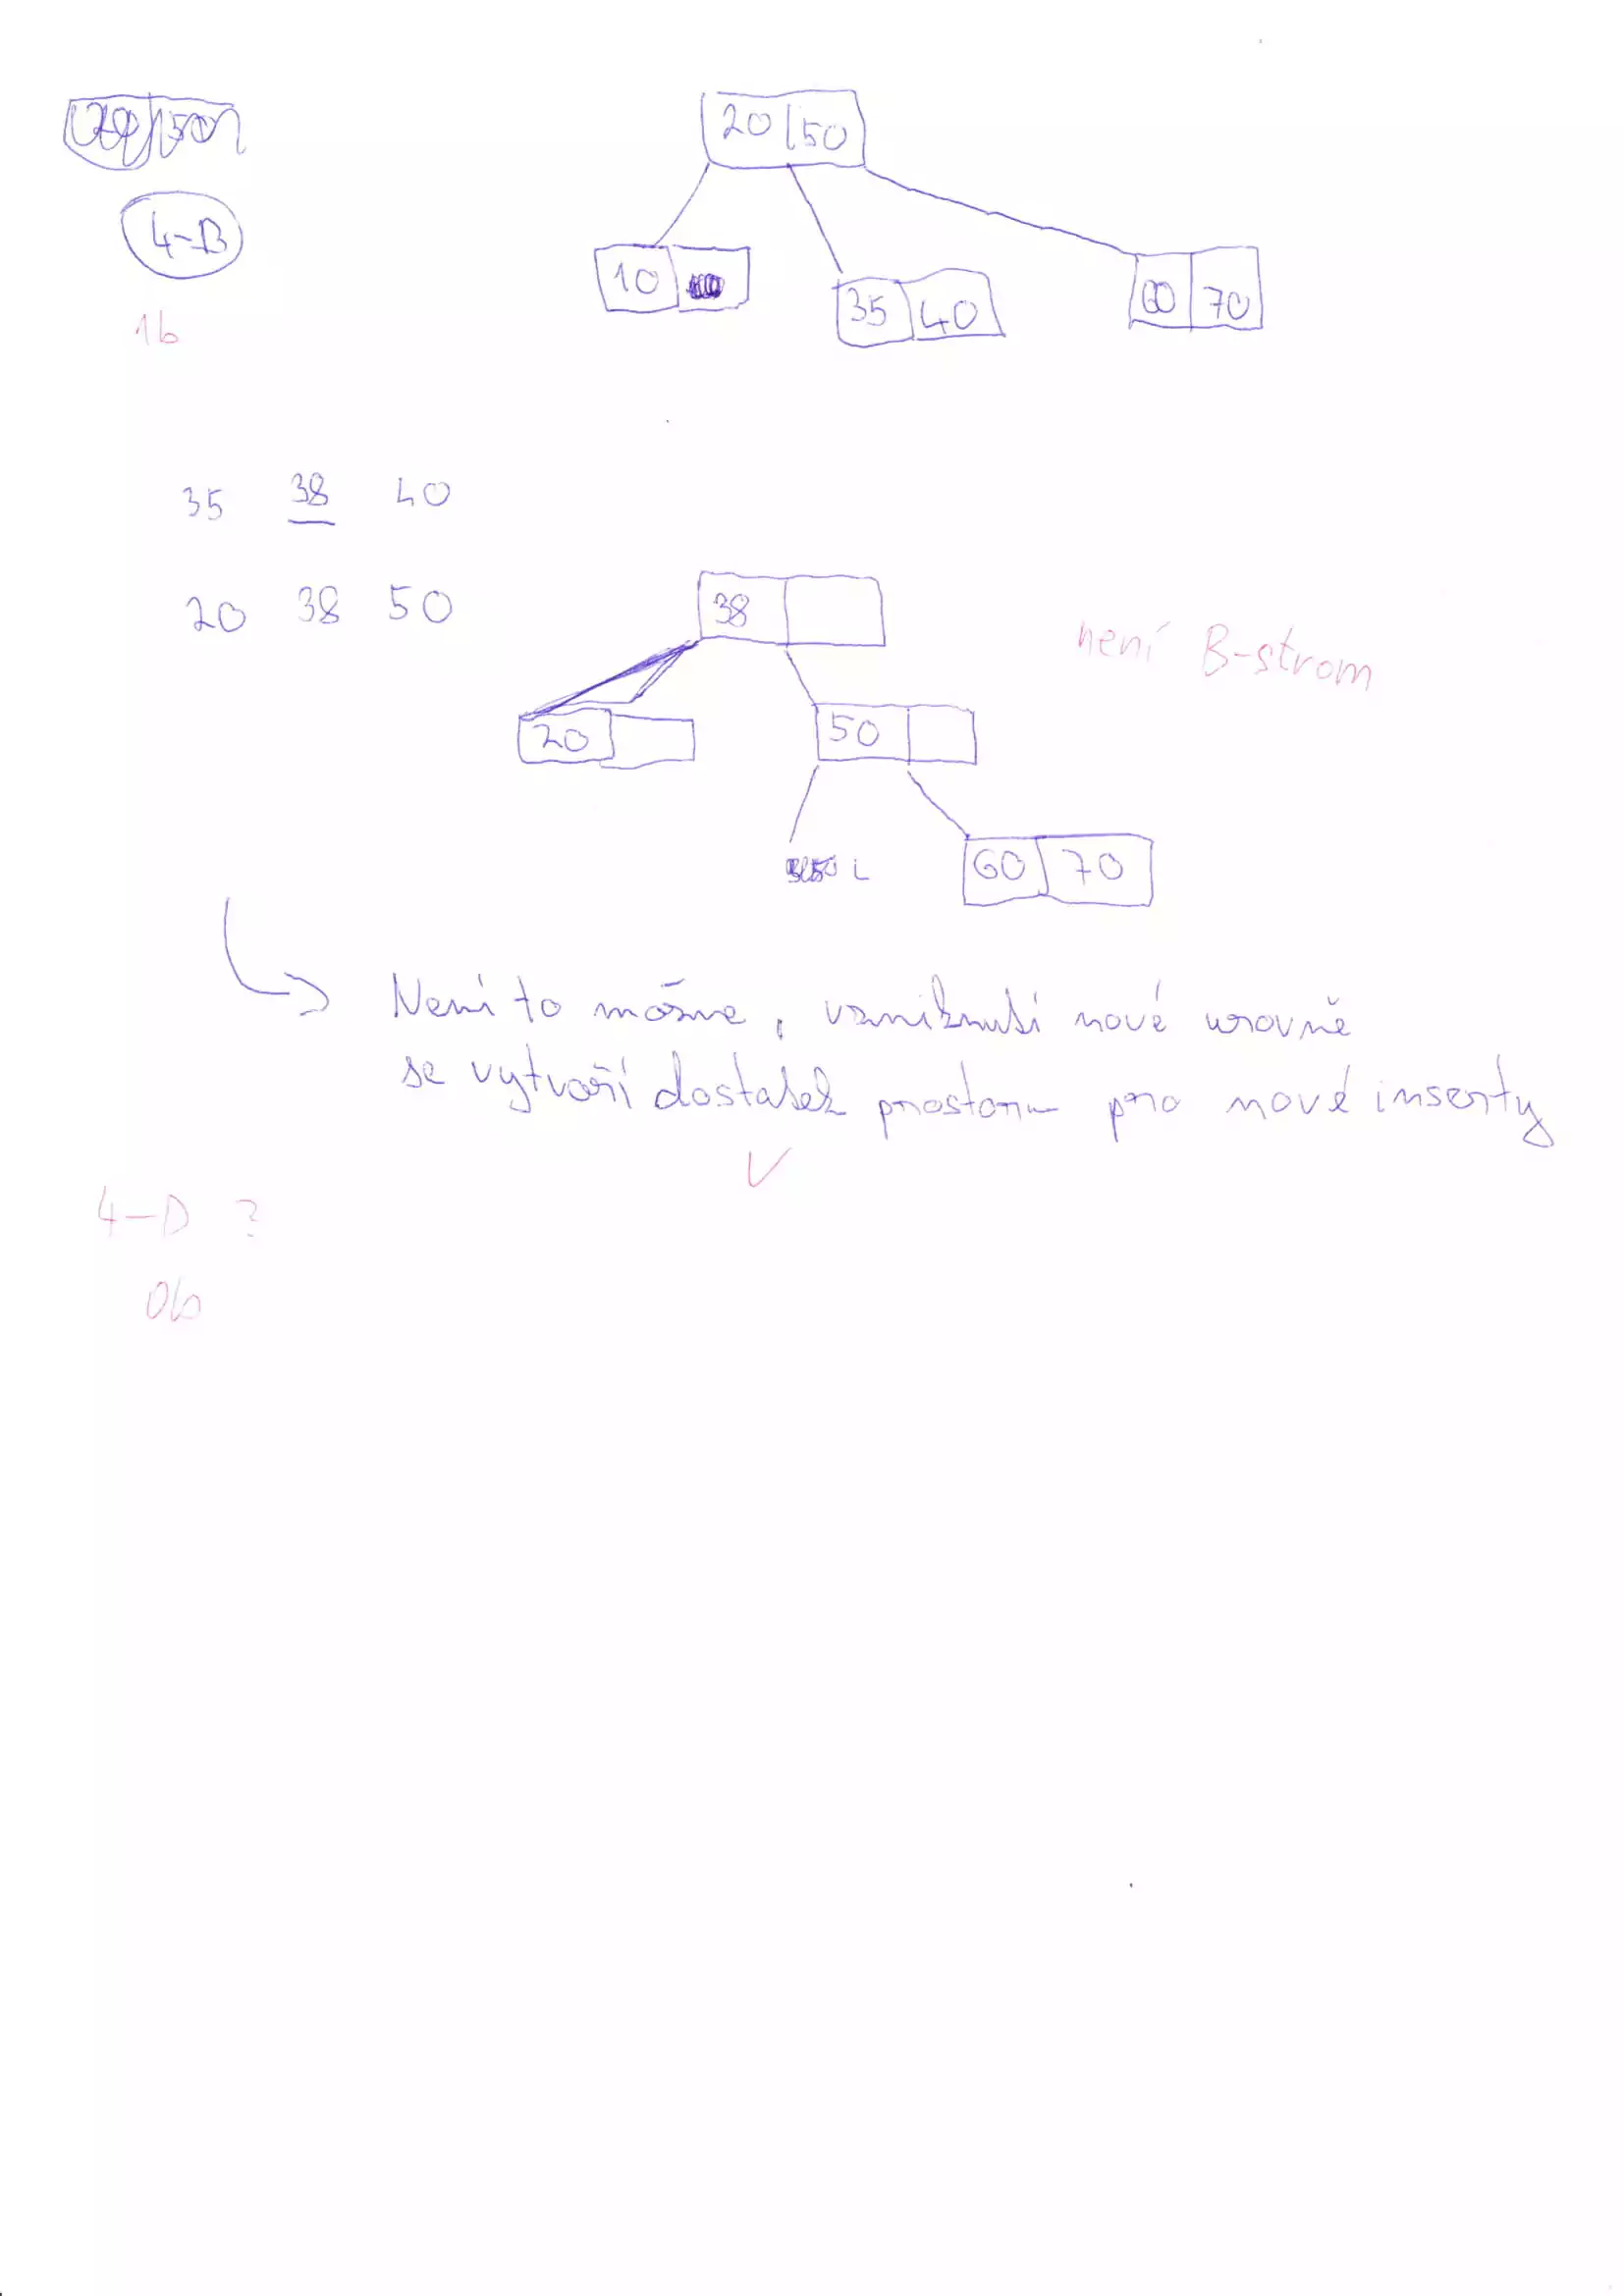 20 50
4-B
1b
20 | 50
10
35 40
60 70
35 38 40
20 38 50
38
není B-strom
20
50
60 70
Není to možne, vzniknutí nové urovně
se vytvoří dostatek prostoru pro nové inserty
4-D ?
0b